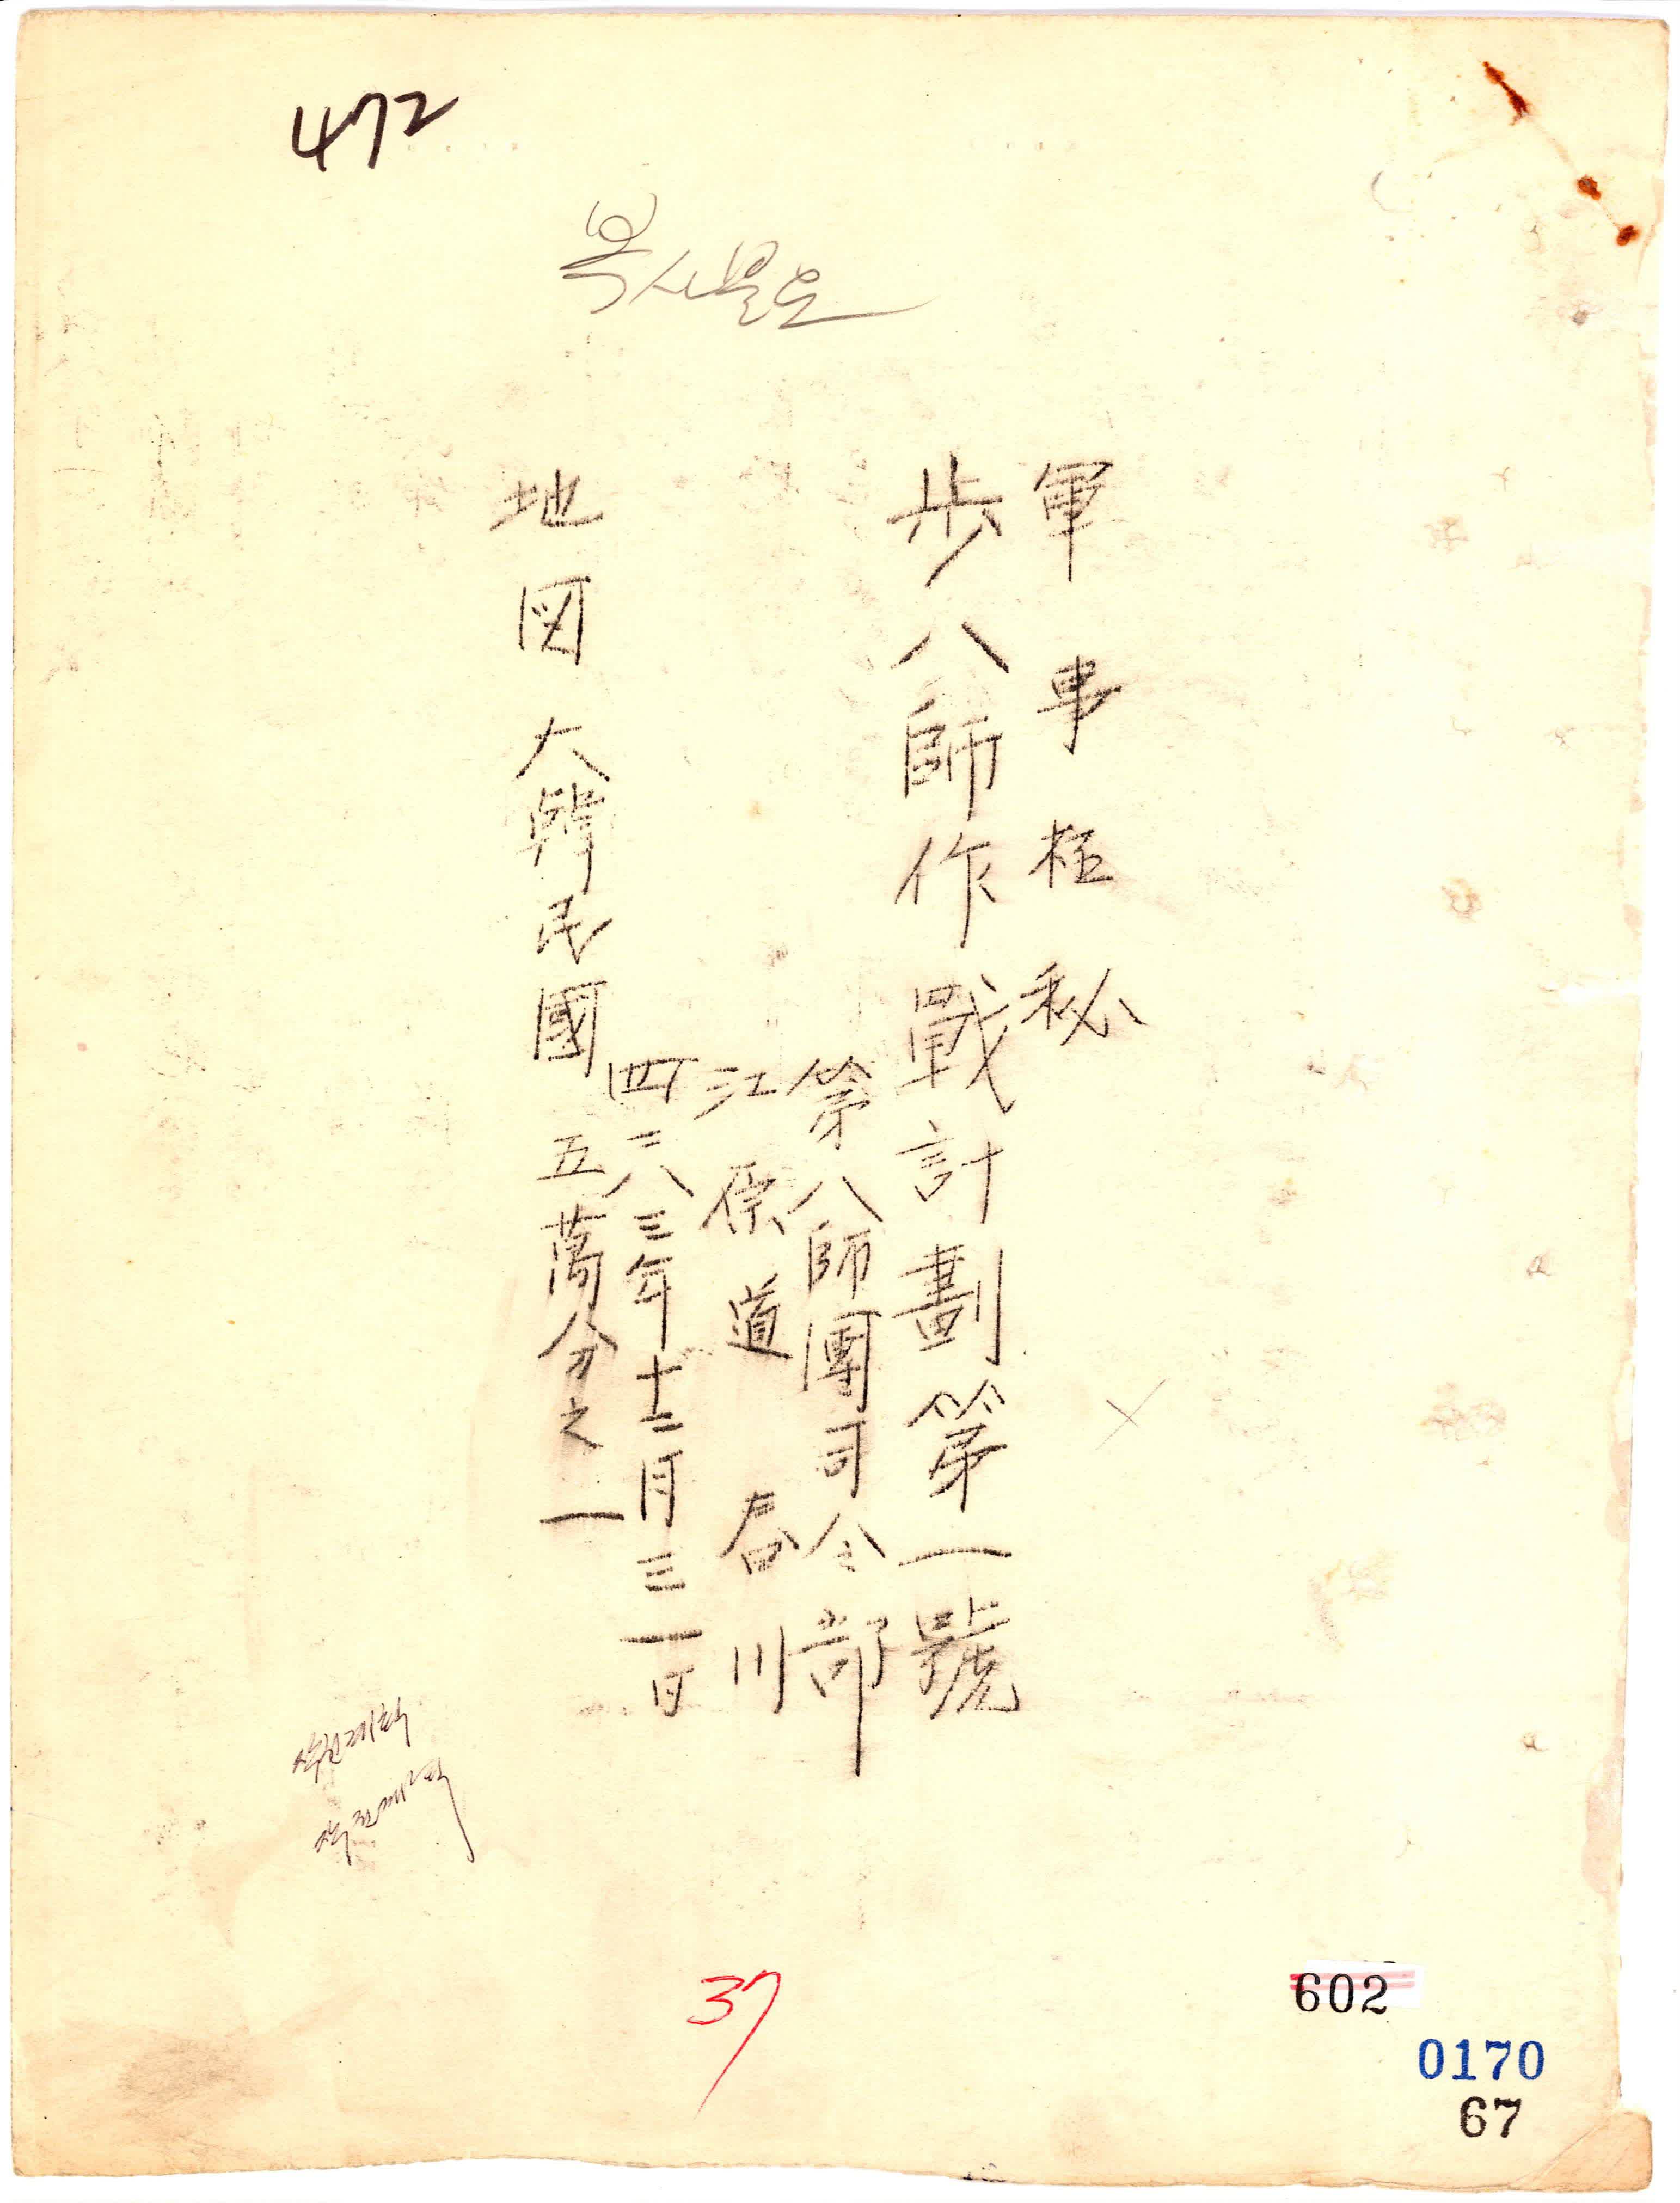 472
軍事極秘
步八師作戰計劃第一號
第八師團司令部
江原道 春川
四二八三年十二月三一日
地図 大韓民國 五萬分之一
작전계획
작전계획
37
602
0170
67